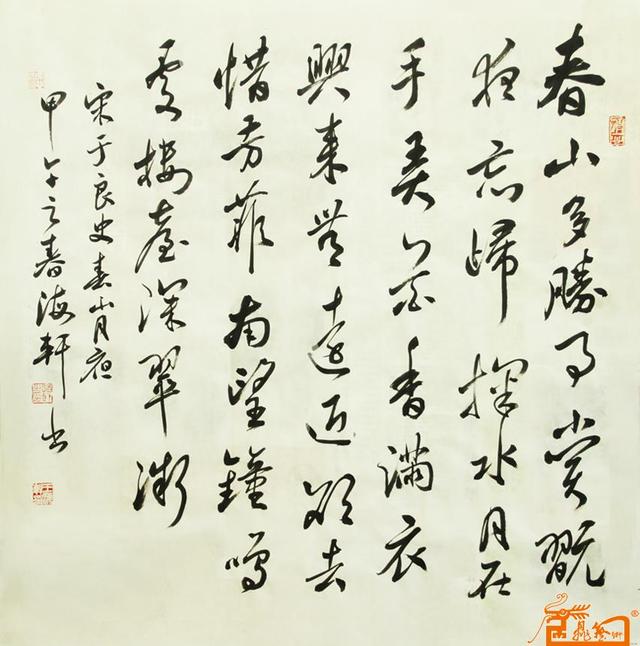 春山多勝事賞翫
夜忘歸掬水月在
手弄花香滿衣
興來無遠近欲去
惜芳菲南望鐘鳴
處樓臺深翠微
宋于良史春山月夜
甲午之春海軒书